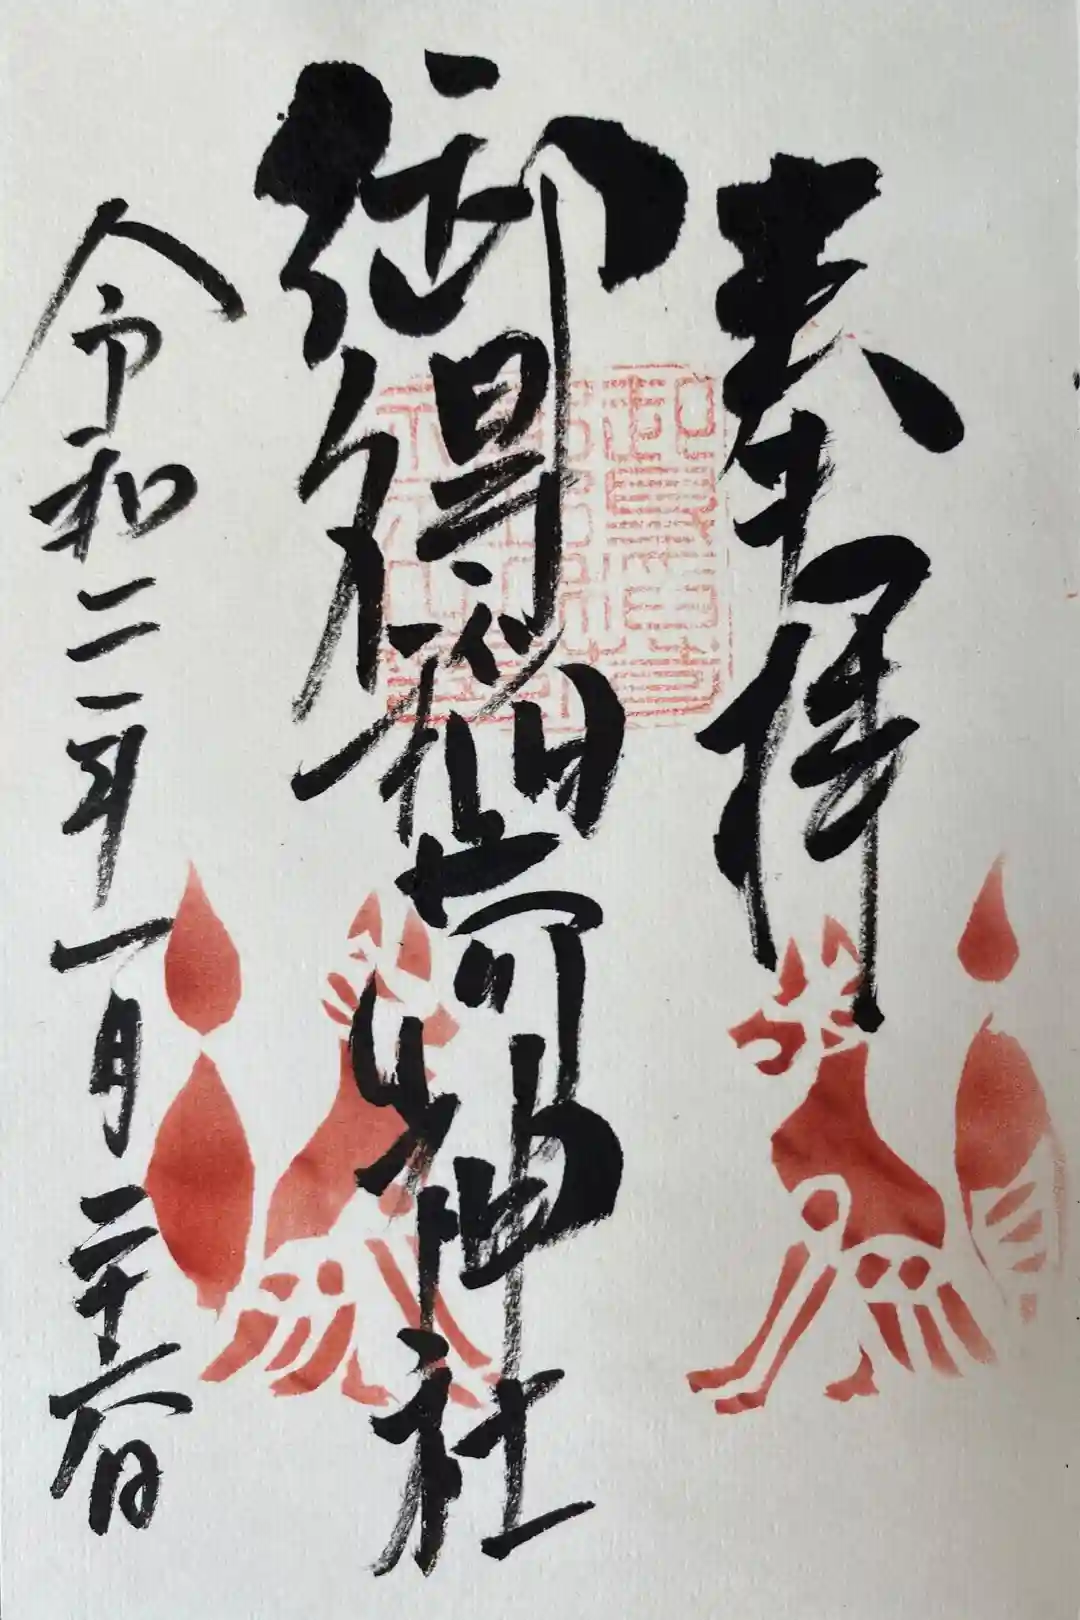 奉拝
御得稲荷神社
令和二年一月二十六日